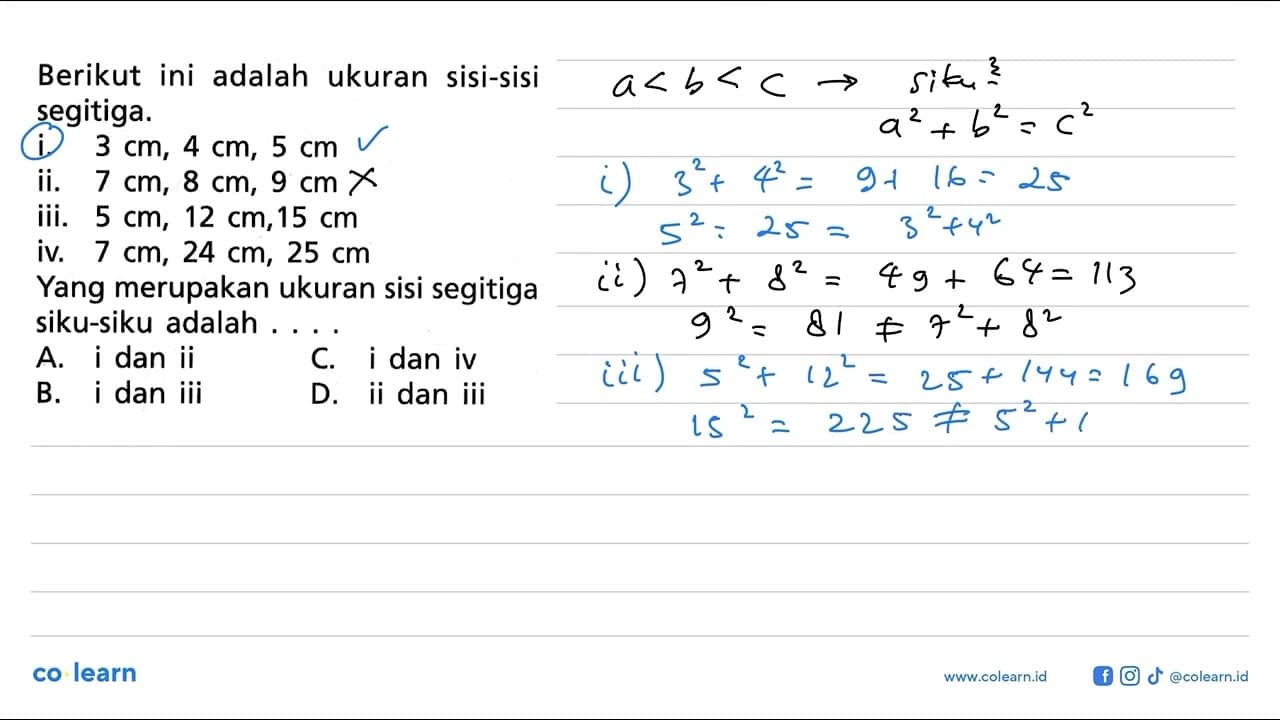 Berikut ini adalah ukuran sisi-sisi
segitiga.
i. 3 cm, 4 cm, 5 cm ✓
ii. 7 cm, 8 cm, 9 cm ✗
iii. 5 cm, 12 cm,15 cm
iv. 7 cm, 24 cm, 25 cm
Yang merupakan ukuran sisi segitiga
siku-siku adalah . . . .
A. i dan ii C. i dan iv
B. i dan iii D. ii dan iii
a < b < c → siku²
a² + b² = c²
i) 3² + 4² = 9 + 16 = 25
5² = 25 = 3² + 4²
ii) 7² + 8² = 49 + 64 = 113
9² = 81 ≠ 7² + 8²
iii) 5² + 12² = 25 + 144 = 169
15² = 225 ≠ 5² + 1
co learn
www.colearn.id @colearn.id